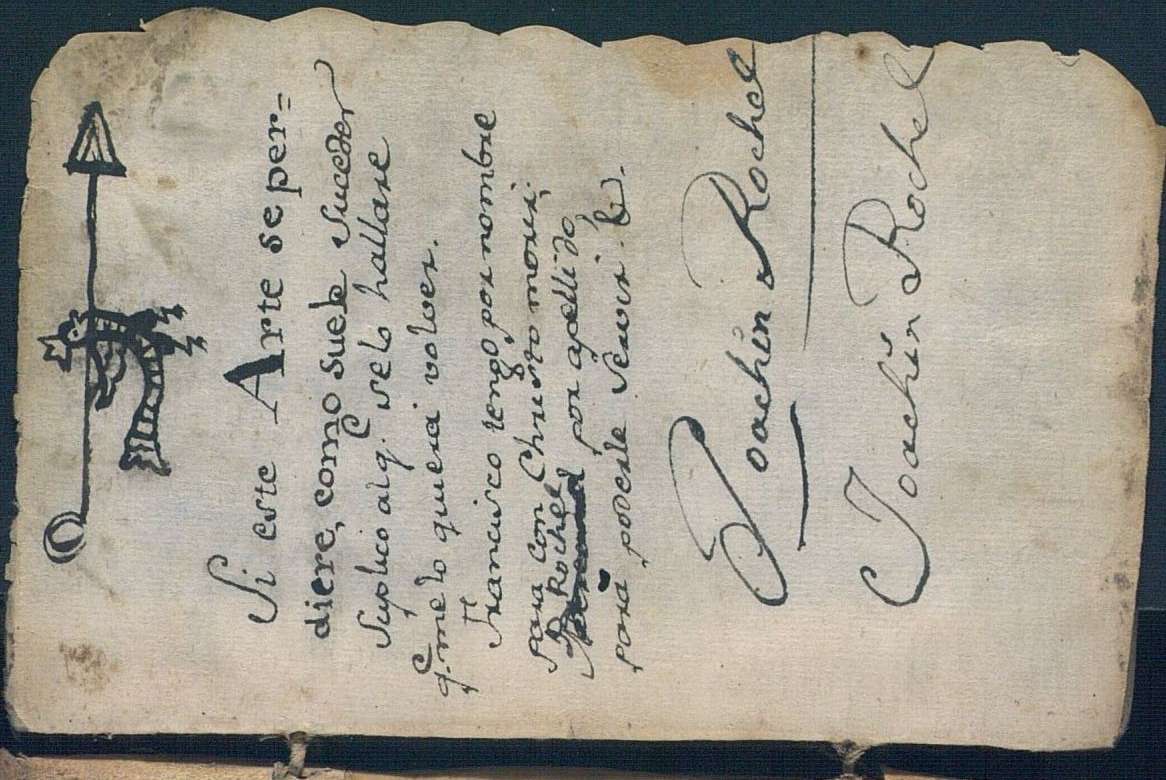 Si este Arte se per=
diere, como suele suceder
Suplico al q.e se lo hallare
q.e me lo quiera volver.
Francisco tengo por nombre
para con Christo morir,
Rochel por apellido,
para poderle servir. &.
Joachin Rochel
Joachin Rochel